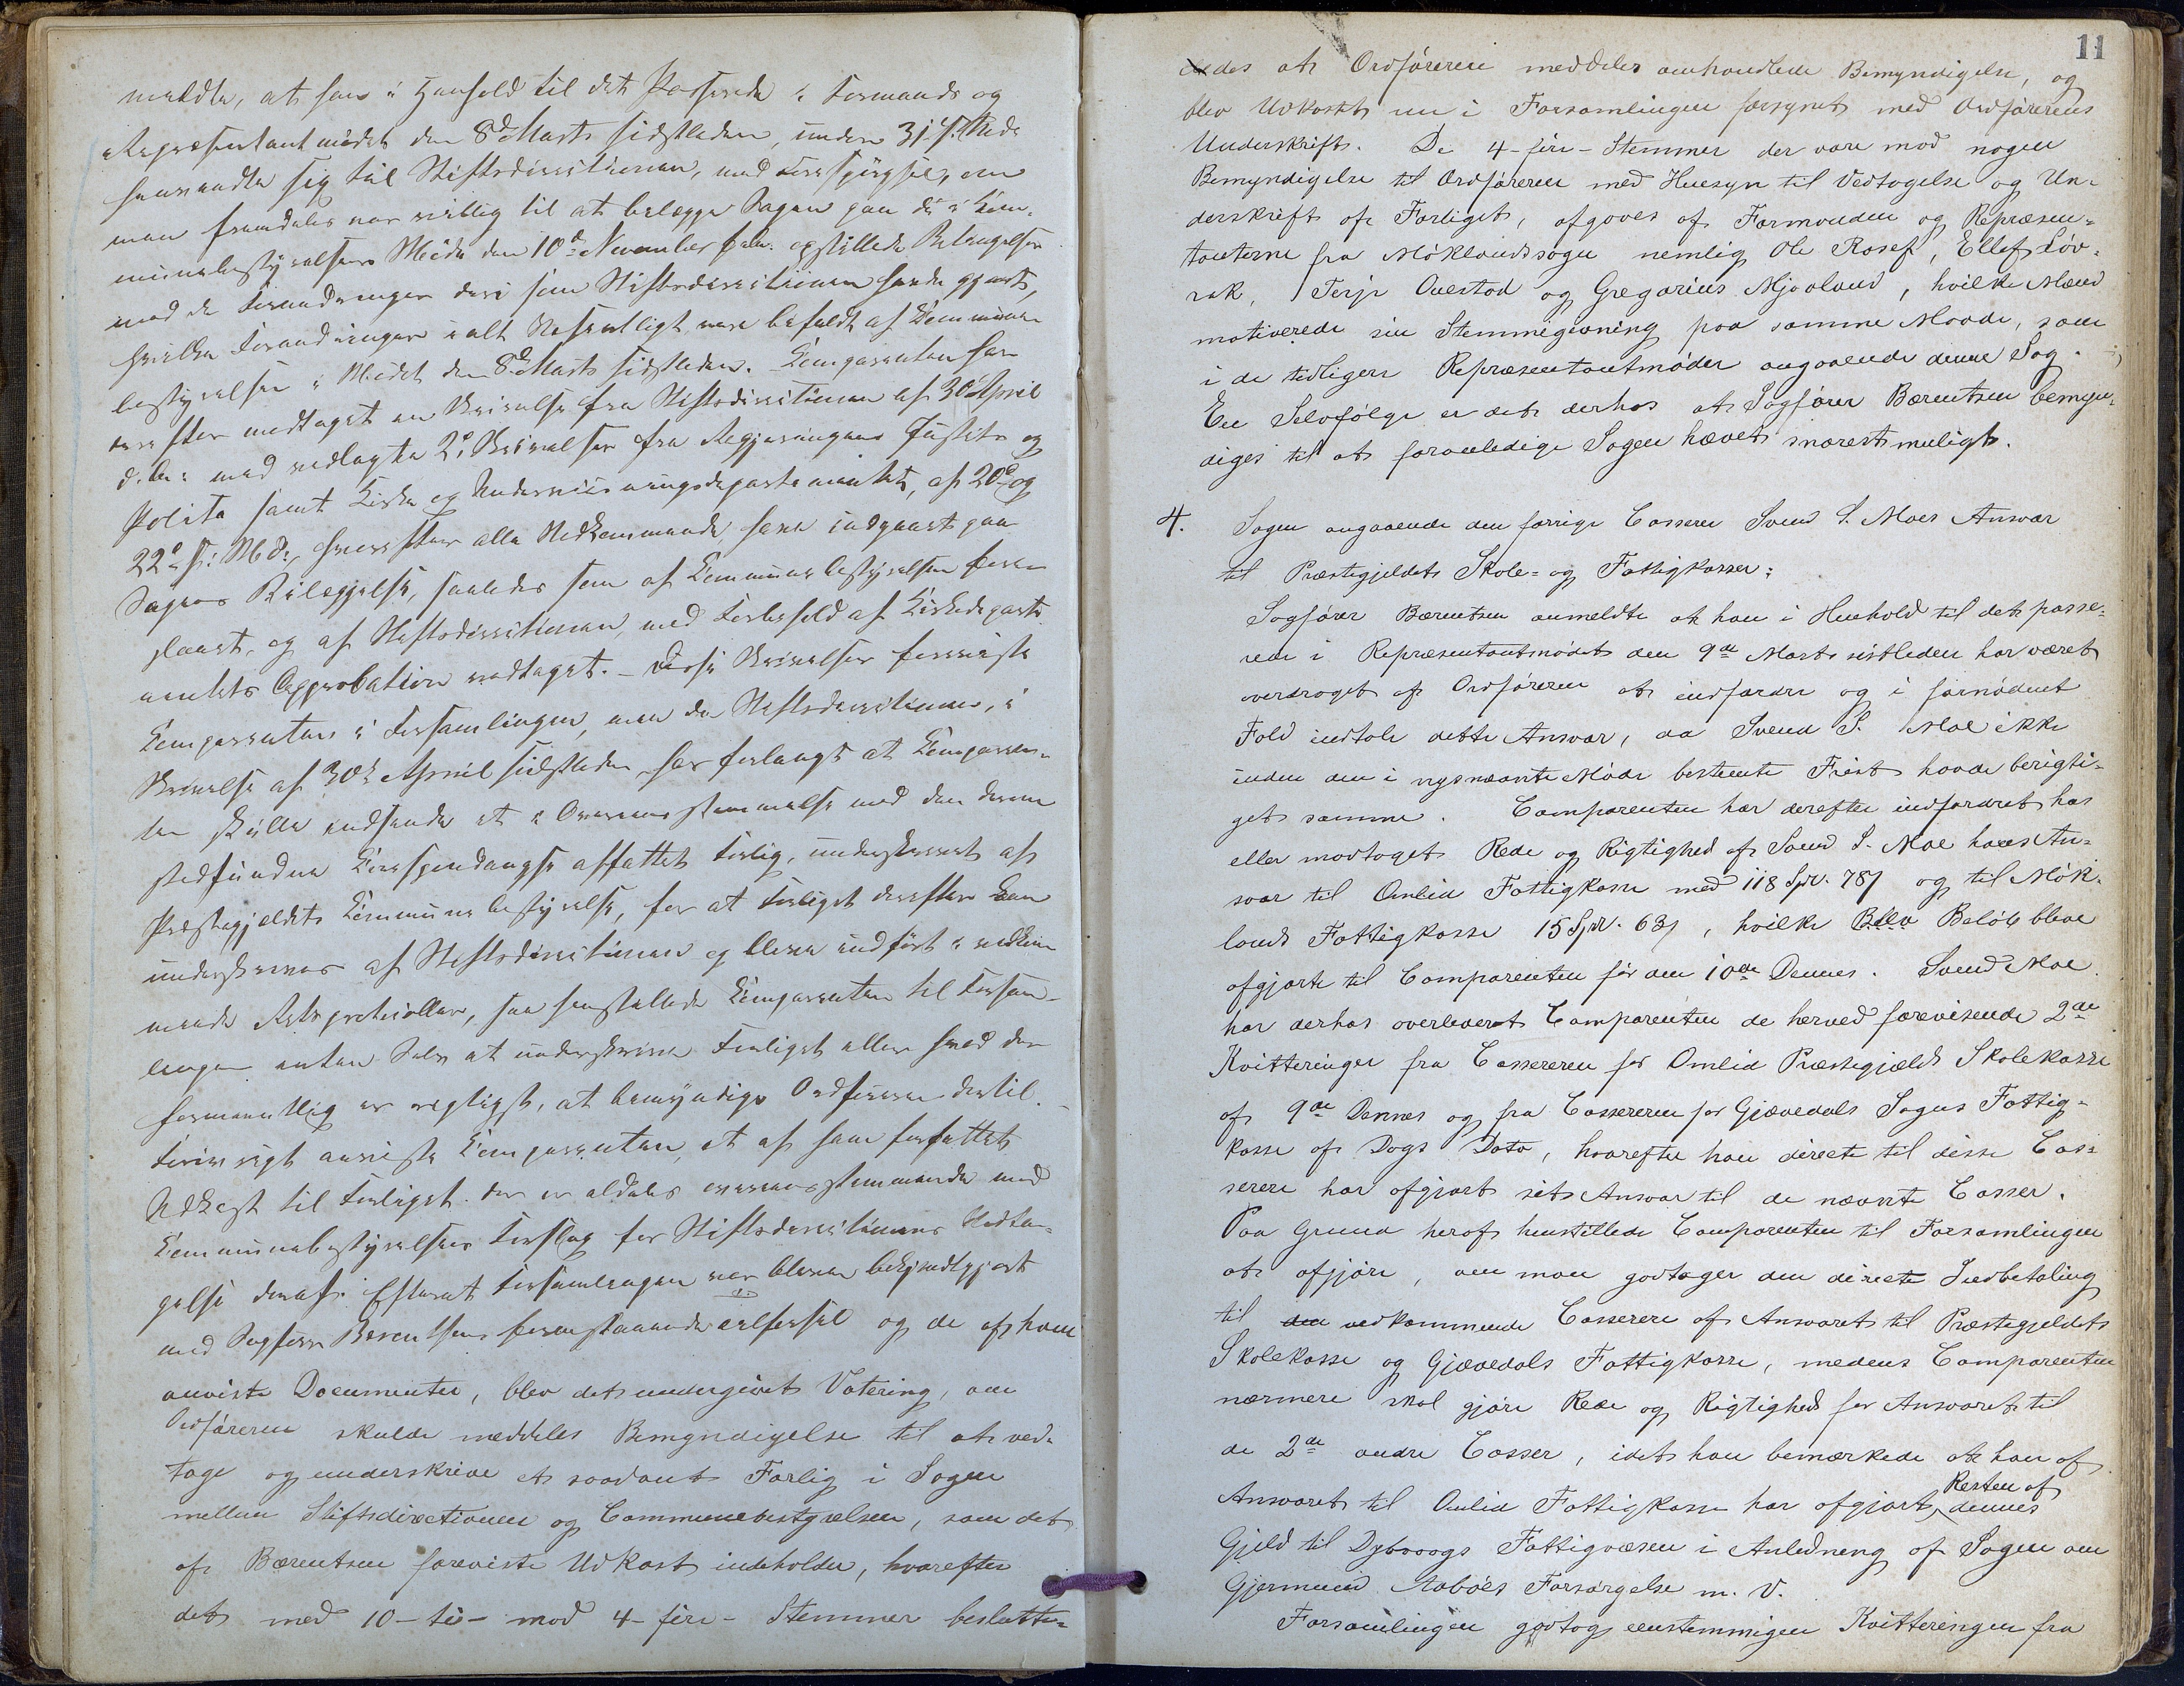 meldte, at han i Henhold til det Passerede i Formands og
Repræsentantmødet den 8de Marts sidstleden, under 31 s. Mds
henvendte sig til Stiftsdirectionen, med Forespørgsel, om
man fremdeles var villig til at bilægge Sagen paa de i Com-
munebestyrelsens Møde den 10de November f.A. opstillede Betingelser
med de Forandringer deri som Stiftsdirectionen havde gjort,
hvilke Forandringer i alt Væsentligt vare befuldt af Commune-
bestyrelsen i Mødet den 8de Marts sidstleden. Comparenten har
derefter modtaget en Skrivelse fra Stiftsdirectionen af 30te April
d.A. med vedlagte 2de Skrivelser fra Regjeringens Justits og
Politi samt Kirke og Undervisningsdepartementet, af 20de og
22de s: Md:, hvorefter alle Vedkommende have indgaaet paa
Sagens Bilæggelse, saaledes som af Communebestyrelsen fore-
slaaet, og af Stiftsdirectionen, med Forbehold af Kirkedeparte-
mentets Approbation vedtaget. – Disse Skrivelser foreviste
Comparenten i Forsamlingen, men da Stiftsdirectionen, i
Skrivelse af 30te April sidstleden har forlangt at Comparen-
ten skulle indsende et i Overensstemmelse med den derom
stedfundne Correspondangse affattet Forlig, underskrevet af
Præstegjeldets Communebestyrelse, for at Forliget derefter kan
underskrives af Stiftsdirectionen og blive indført i vedkom-
mende Retsprotocoller, saa henstillede Comparenten til Forsam-
lingen enten Selv at underskrive Forliget eller hvad der
formeentlig er rigtigst, at bemyndige Ordføreren dertil. –
Forøvrigt anviste Comparenten, et af ham forfattet
Udkast til Forliget. der er aldeles overensstemmende med
Communebestyrelsens Forslag for Stiftsdirectionens Vedta-
gelse deraf. Efterat Forsamlingen var bleven bekjendtgjort
med Sagfører Berentsens forenstaaende Andførsel og de af ham
anviste Documenter, blev det undergivet Votering, om
Ordføreren skulde meddeles Bemyndigelse til at ved-
tage og underskrive et saadant Forlig i Sagen
mellem Stiftsdirectionen og Communebestyrelsen, som det
af Bærentsen foreviste Udkast indeholder, hvorefter
det med 10 – ti – mod 4 – fire – Stemmer beslutte-
11
des at Ordføreren meddeles omhandlede Bemyndigelse, og
blev Udkastet nu i Forsamlingen forsynet med Ordførerens
Underskrift. De 4 – fire – Stemmer der vare mod nogen
Bemyndigelse til Ordføreren med Hensyn til Vedtagelse og Un-
derskrift af Forliget, afgaves af Formænden og Repræsen-
tanterne fra Møklandssogn nemlig Ole Rosef, Ellef Løv-
rak, Terje Ovestad og Gregorius Mjovland, hvilke Mænd
motiverede sin Stemmegivning paa samme Maade, som
i de tidligere Repræsentantmøder angaaende denne Sag.
En Selvfølge er det derhos at Sagfører Bærentsen bemyn-
diges til at foranledige Sagen hævet snarest muligt.
4. Sagen angaaende den forrige Casserer Svend S. Moes Ansvar
til Præstegjeldets Skole- og Fattigkasser:
Sagfører Bærentsen anmeldte at han i Henhold til det passe-
rede i Repræsentantmødet den 9de Marts sistleden har været
overdraget af Ordføreren at indfordre og i fornødent
Fald indtale dette Ansvar, da Svend S. Moe ikke
inden den i nysnævnte Møde bestemte Frist havde berigti-
get samme. Comparenten har derefter indfordret hos
eller modtaget Rede og Rigtighed af Svend S. Moe hans An-
svar til Omlid Fattigkasse med 118 Spd. 78 s og til Møk-
lands Fattigkasse 15 Spd. 63 s, hvilke Beløb bleve
afgjorte til Comparenten før den 10de Dennes. Svend Moe
har derhos overleveret Comparenten de herved forevisende 2de
Kvitteringer fra Cassereren for Omlid Præstegjælds Skolekasse
af 9de Dennes og fra Cassereren for Gjøvedals Sogns Fattig-
kasse af Dags Dato, hvorefter han directe til disse Cas-
serere har afgjort sit Ansvar til de nævnte Casser.
Paa Grund heraf henstillede Comparenten til Forsamlingen
at afgjøre, om man godtager den directe Indbetaling
til den vedkommende Casserere af Ansvaret til Præstegjeldets
Skolekasse og Gjøvedals Fattigkasse, medens Comparenten
nærmere skal gjøre Rede og Rigtighed for Ansvaret til
de 2de andre Casser, idet han bemærkede at han af
Ansvaret til Omlid Fattigkasse har afgjort Resten af dennes
Gjeld til Dybvaags Fattigvæsen i Anledning af Sagen om
Gjermund Aabøes Forsørgelse m. v.
Forsamlingen godtog eenstemmigen Kvitteringen fra